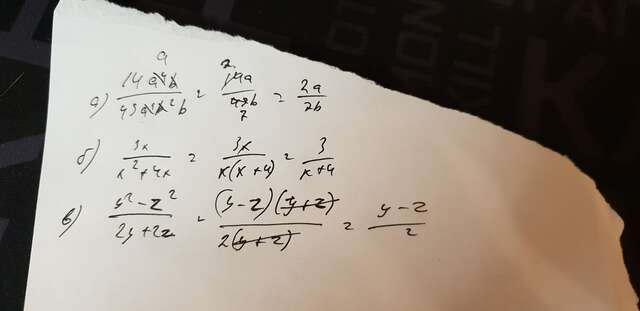 а) 14a⁴b / 49a³b²b = 14a / 49b = 2a / 7b
б) 3x / x² + 4x = 3x / x(x + 4) = 3 / x + 4
в) y² - z² / 2y + 2z = (y - z)(y + z) / 2(y + z) = y - z / 2